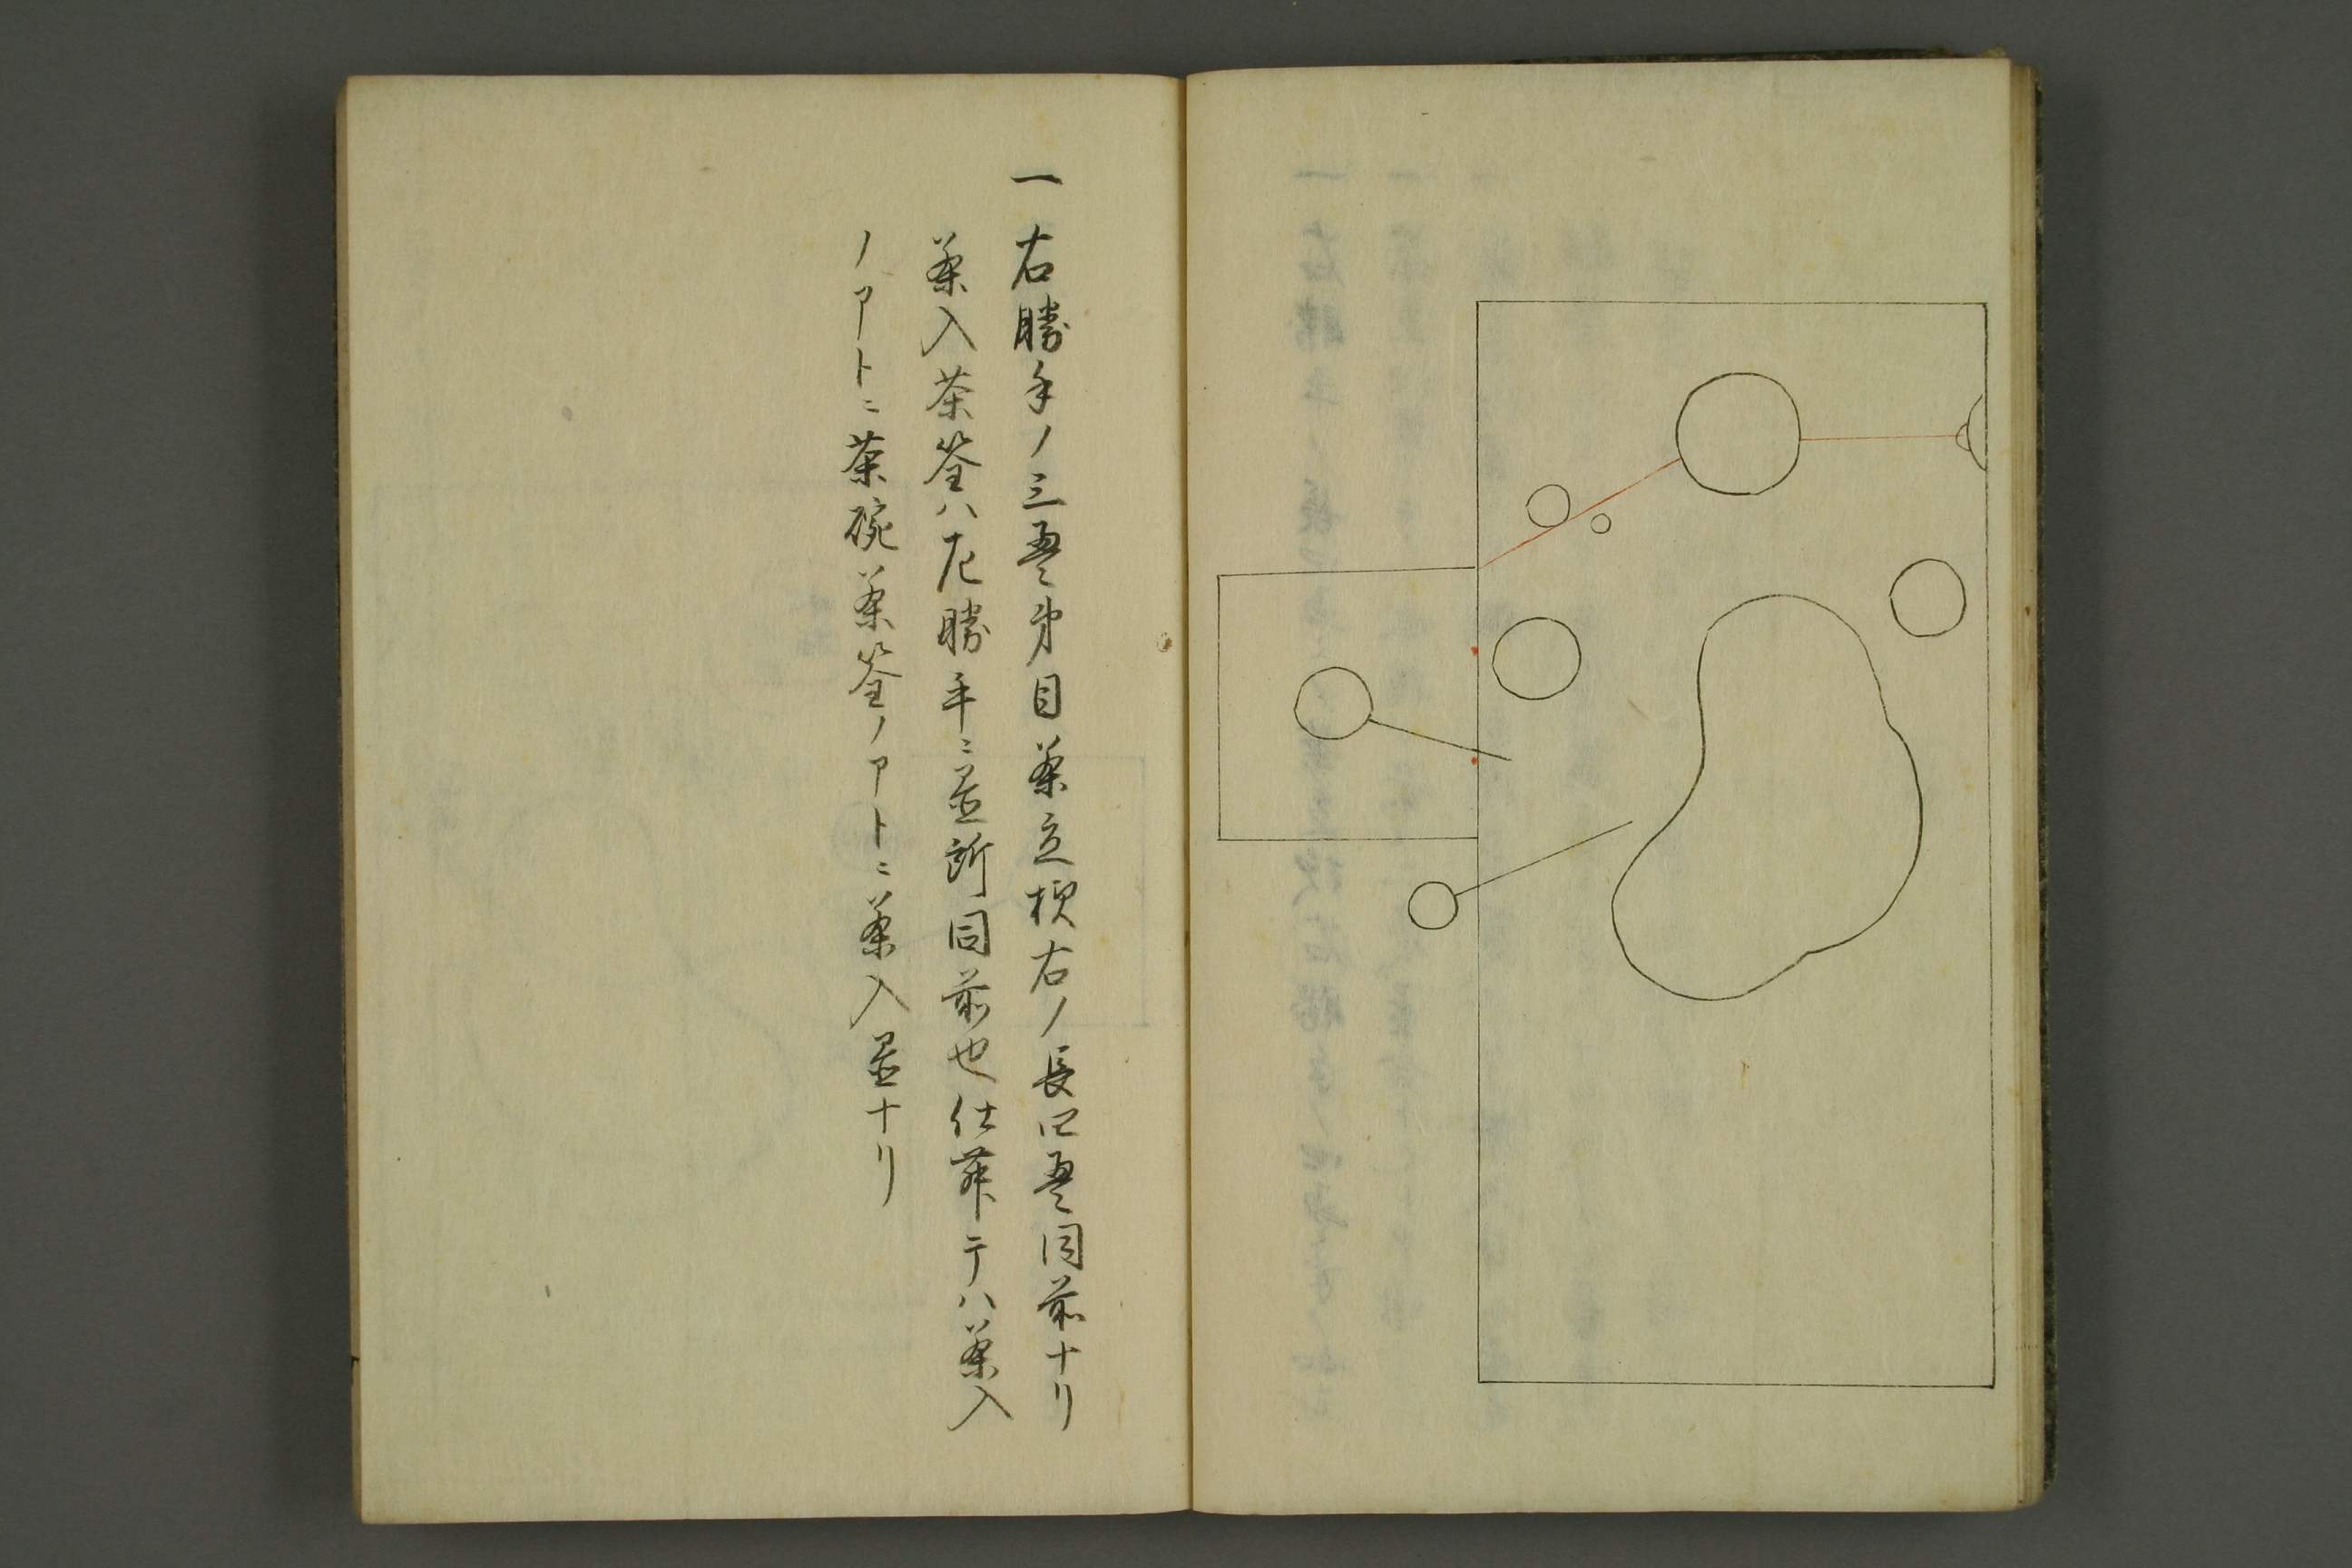 一右勝手ノ三畳半目茶立様右ノ長四畳同前ナリ
茶入茶筌ハ左勝手ニ置所同前也仕舞テハ茶入
ノアトニ茶碗茶筌ノアトニ茶入置ナリ